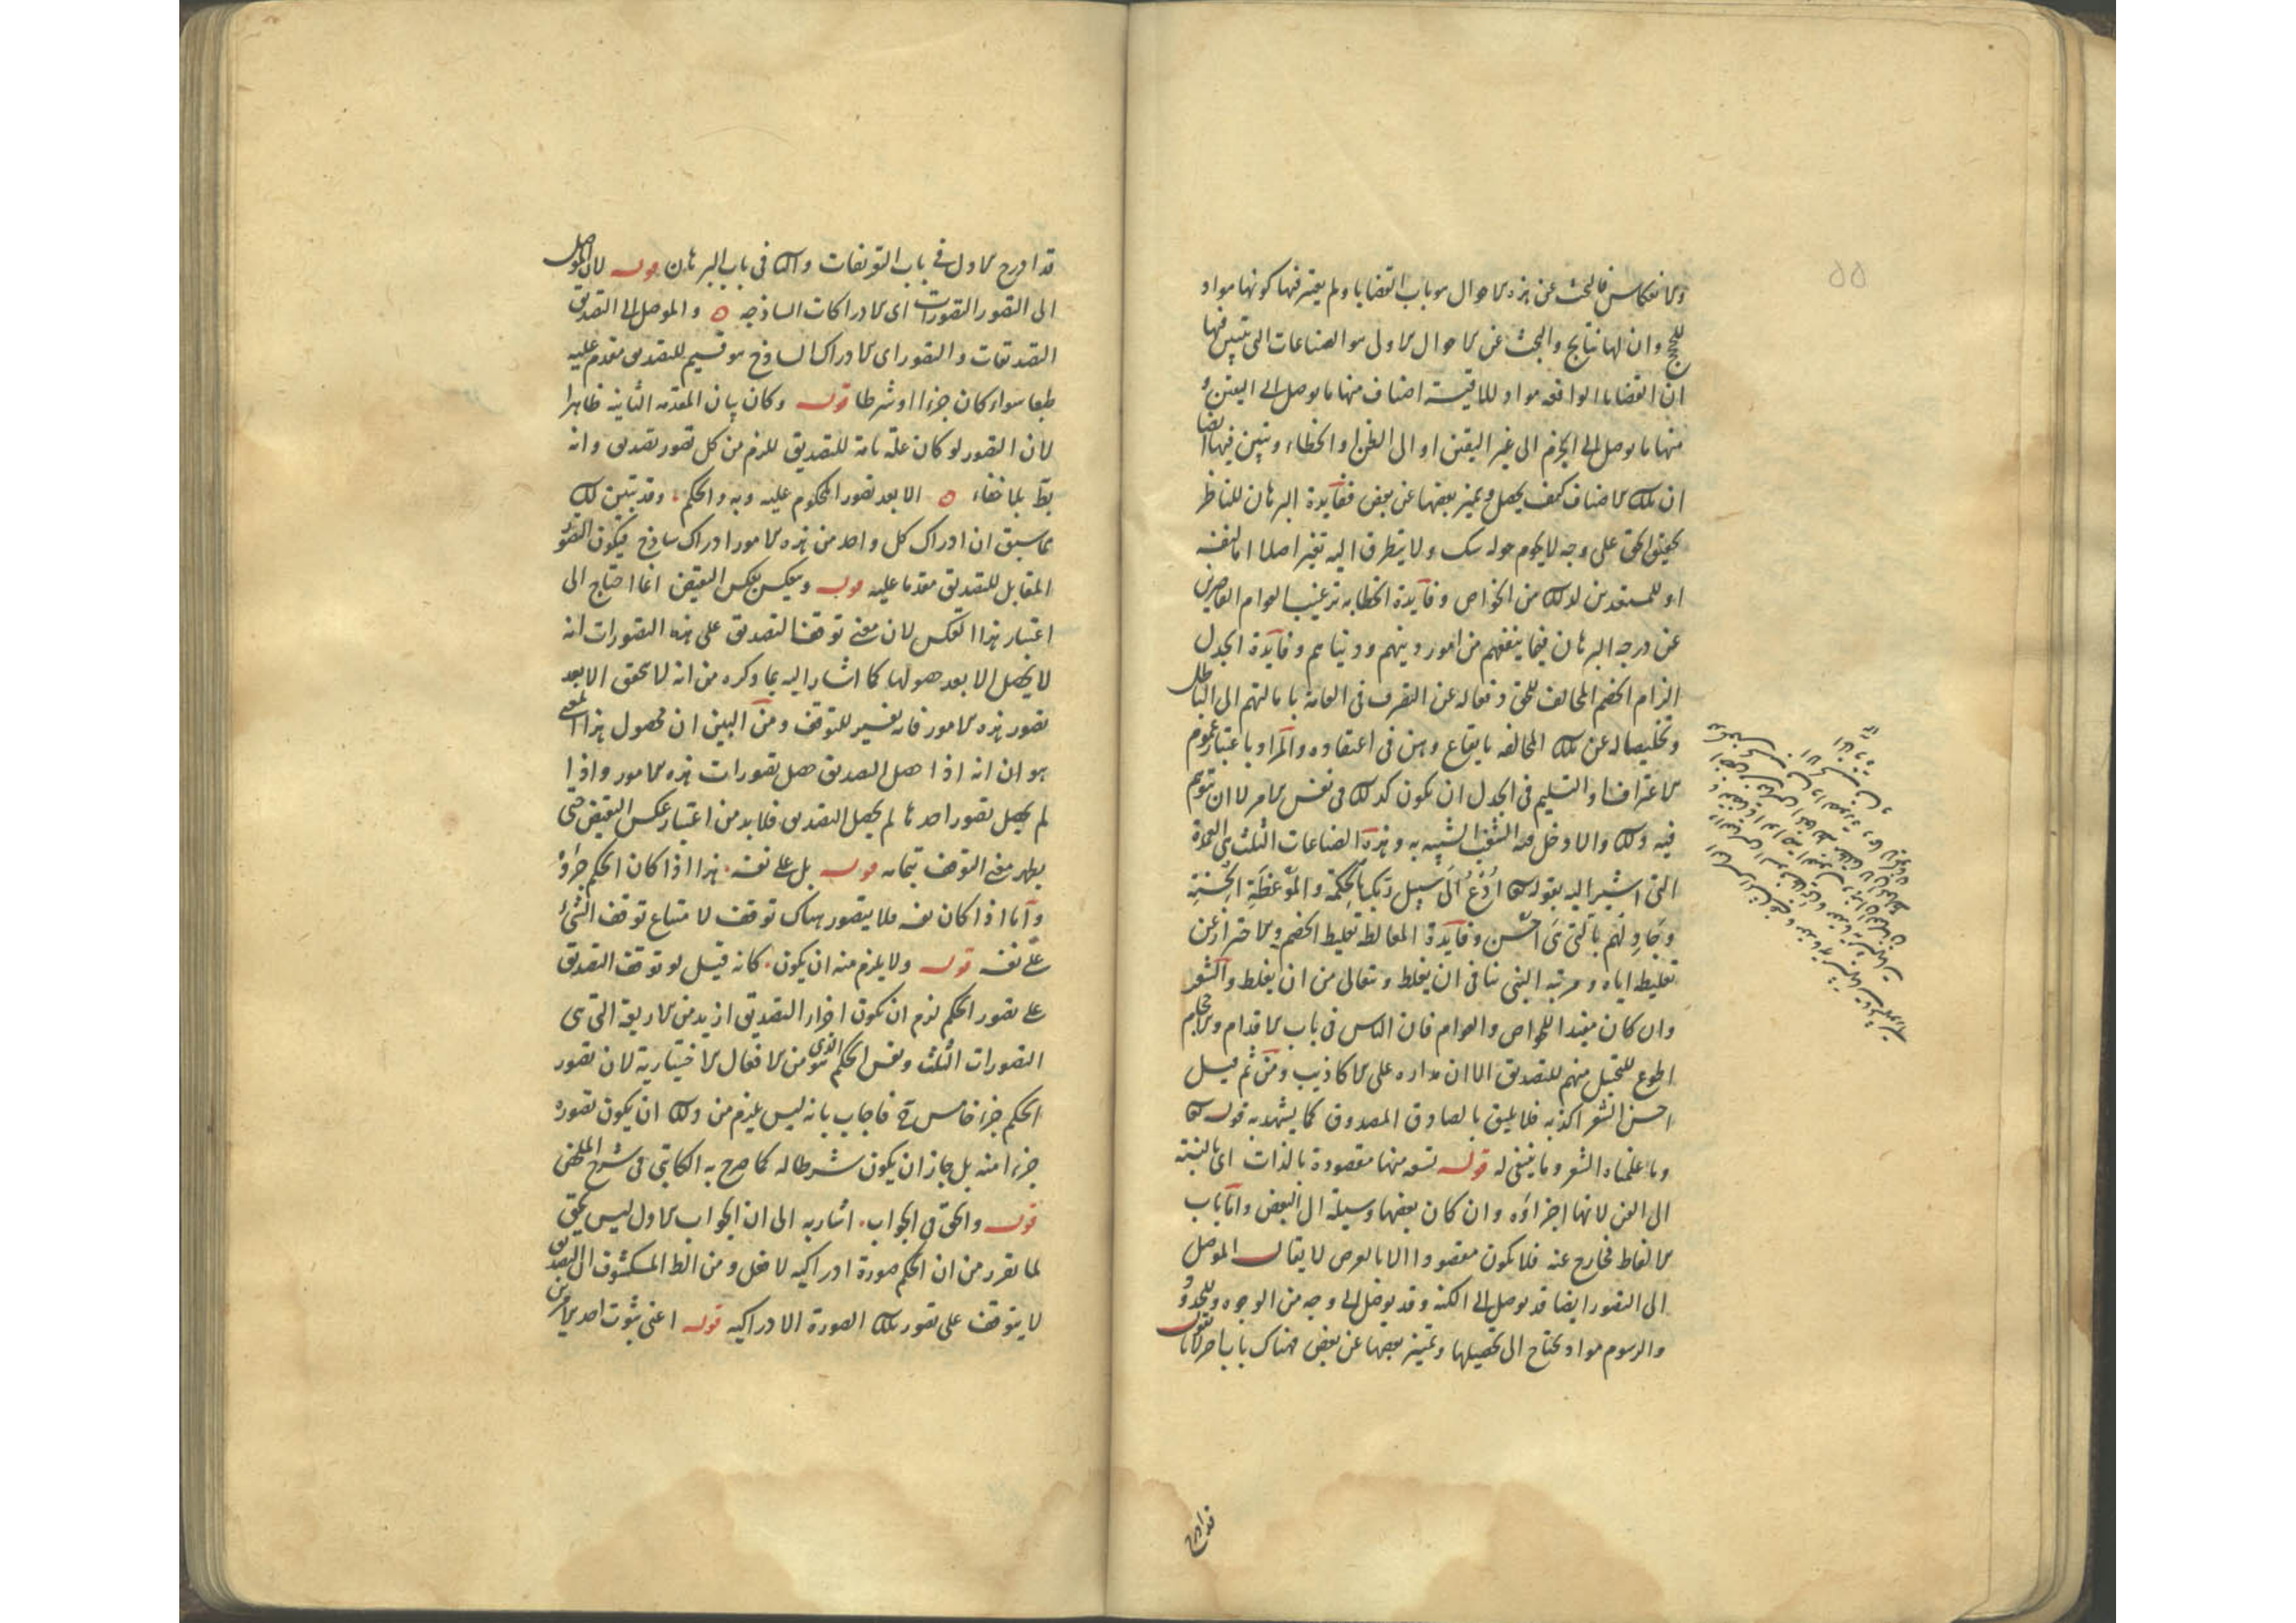 والانعكاس فالبحث عن هذه الاحوال هو باب القضايا ولم يعتبر فيها كونها مواد
للحجج وان لها نتايج والبحث عن الاحوال الاولى هو الصناعات التى يتبين فيها
ان القضايا الواقعه مواد للاقيسة اصناف منها ما يوصل الى اليقين و
منها ما يوصل الى الجزم الى غير اليقين او الى الظن او الخطاء ويتبين فيها ايضا
ان تلك الاصناف كيف يحصل ويميز بعضها عن بعض ففآيدة البرهان للناظر
تحقيق الحق على وجه لا يحوم حوله شك ولا يتطرق اليه تغير اصلا اما لنفسه
او للمستعدين لذلك من الخواص وفآيدة الخطابه ترغيب العوام القاصرين
عن درجه البرهان فيما ينفعهم من امور دينهم ودنياهم وفآيدة الجدل
الزام الخصم المخالف للحق دفعا له عن التصرف فى العامة بامالتهم الى الباطل
وتخليصا له عن تلك المخالفه بايقاع وهن فى اعتقاده والمراد باعتبار عموم
الاعتراف او التسليم فى الجدل ان يكون كذلك فى نفس الامر لا ان يتوهم
فيه ذلك والا دخل فيه الشغب الشبيه به وهذه الصناعات الثلث هى العمدة
التى اشير اليه بقوله تعا اُدْعُ اِلَى سَبِيلِ رَبِّكَ بِالْحِكْمَةِ والْمَوْعِظَةِ الْحَسَنَةِ
وَجَادِلْهُمْ بِالَّتِى هِىَ اَحْسَن وفآيدة المغالطه تغليط الخصم والاحتراز عن
تغليطه اياه ومرتبه النبى تنافى ان يغلط وتتعالى من ان يغلط والشعر
وان كان مفيدا للخواص والعوام فان الناس فى باب الاقدام والاحجام
اطوع للتخيل منهم للتصديق الا ان مداره على الاكاذيب ومن ثم قيل
احسن الشعر اكذبه فلا يليق بالصادق المصدوق كما يشهد به قوله تعا
وما علمناه الشعر وما ينبغى له قوله تسعه منها مقصودة بالذات اى بالنسبة
الى الفن لانها اجزاؤه وان كان بعضها وسيلة الى البعض واما باب
الالفاظ فخارج عنه فلا يكون مقصودا الا بالعرض لا يقال الموصل
الى التصور ايضا قد يوصل الى الكنه وقد يوصل الى وجه من الوجوه وللحدود
والرسوم مواد يحتاج الى تحصيلها وتميز بعضها عن بعض فهناك باب اخر لانا نقول
قد ادرج
قد ادرج الاول فى باب التعريفات والثانى فى باب البرهان قوله لان الموصل
الى التصور التصورات اى الادراكات الساذجه ٥ والموصل الى التصديق
التصديقات والتصور اى الادراك الساذج هو قسيم للتصديق مقدم عليه
طبعا سواء كان جزءا او شرطا قوله وكان بيان المقدمه الثانية ظاهرا
لان التصور لو كان علّه تامة للتصديق للزم من كل تصور تصديق وانه
بط بلا خفاء ٥ الا بعد تصور المحكوم عليه وبه والحكم وقد تبين لك
بما سبق ان ادراك كل واحد من هذه الامور ادراك ساذج فيكون التصور
المقابل للتصديق مقدما عليه قوله وينعكس بعكس النقيض انما احتاج الى
اعتبار هذا العكس لان معنى توقف التصديق على هذه التصورات انه
لا يحصل الا بعد حصولها كما اشار اليه بما ذكره من انه لا يتحقق الا بعد
تصور هذه الامور فانه تفسير للتوقف ومن البين ان محصول هذا المعنى
هو ان انه اذا حصل التصديق حصل تصورات هذه الامور واذا
لم يحصل تصور احدها لم يحصل التصديق فلا بد من اعتبار عكس النقيض حتى
يظهر معنى التوقف بتمامه قوله بل على نفسه هذا اذا كان الحكم جزؤه
وآما اذا كان نفسه فلا يتصور هناك توقف لامتناع توقف الشئ
على نفسه قوله ولا يلزم منه ان يكون كانه قيل لو توقف التصديق
على تصور الحكم لزم ان يكون اجزاء التصديق ازيد من الاربعة التى هى
التصورات الثلث ونفس الحكم الذى هو من الافعال الاختيارية لان تصور
الحكم جزء خامس ح فاجاب بانه ليس يلزم من ذلك ان يكون تصوره
جزءا منه بل جاز ان يكون شرطا له كما صرح به الكاتبى فى شرح الملخص
قوله والحق فى الجواب اشار به الى ان الجواب الاول ليس بحق
لما تقرر من ان الحكم صورة ادراكيه لا فعل ومن الظ المكشوف ان التصديق
لا يتوقف على تصور تلك الصورة الادراكيه قوله اعنى ثبوت احد الامرين